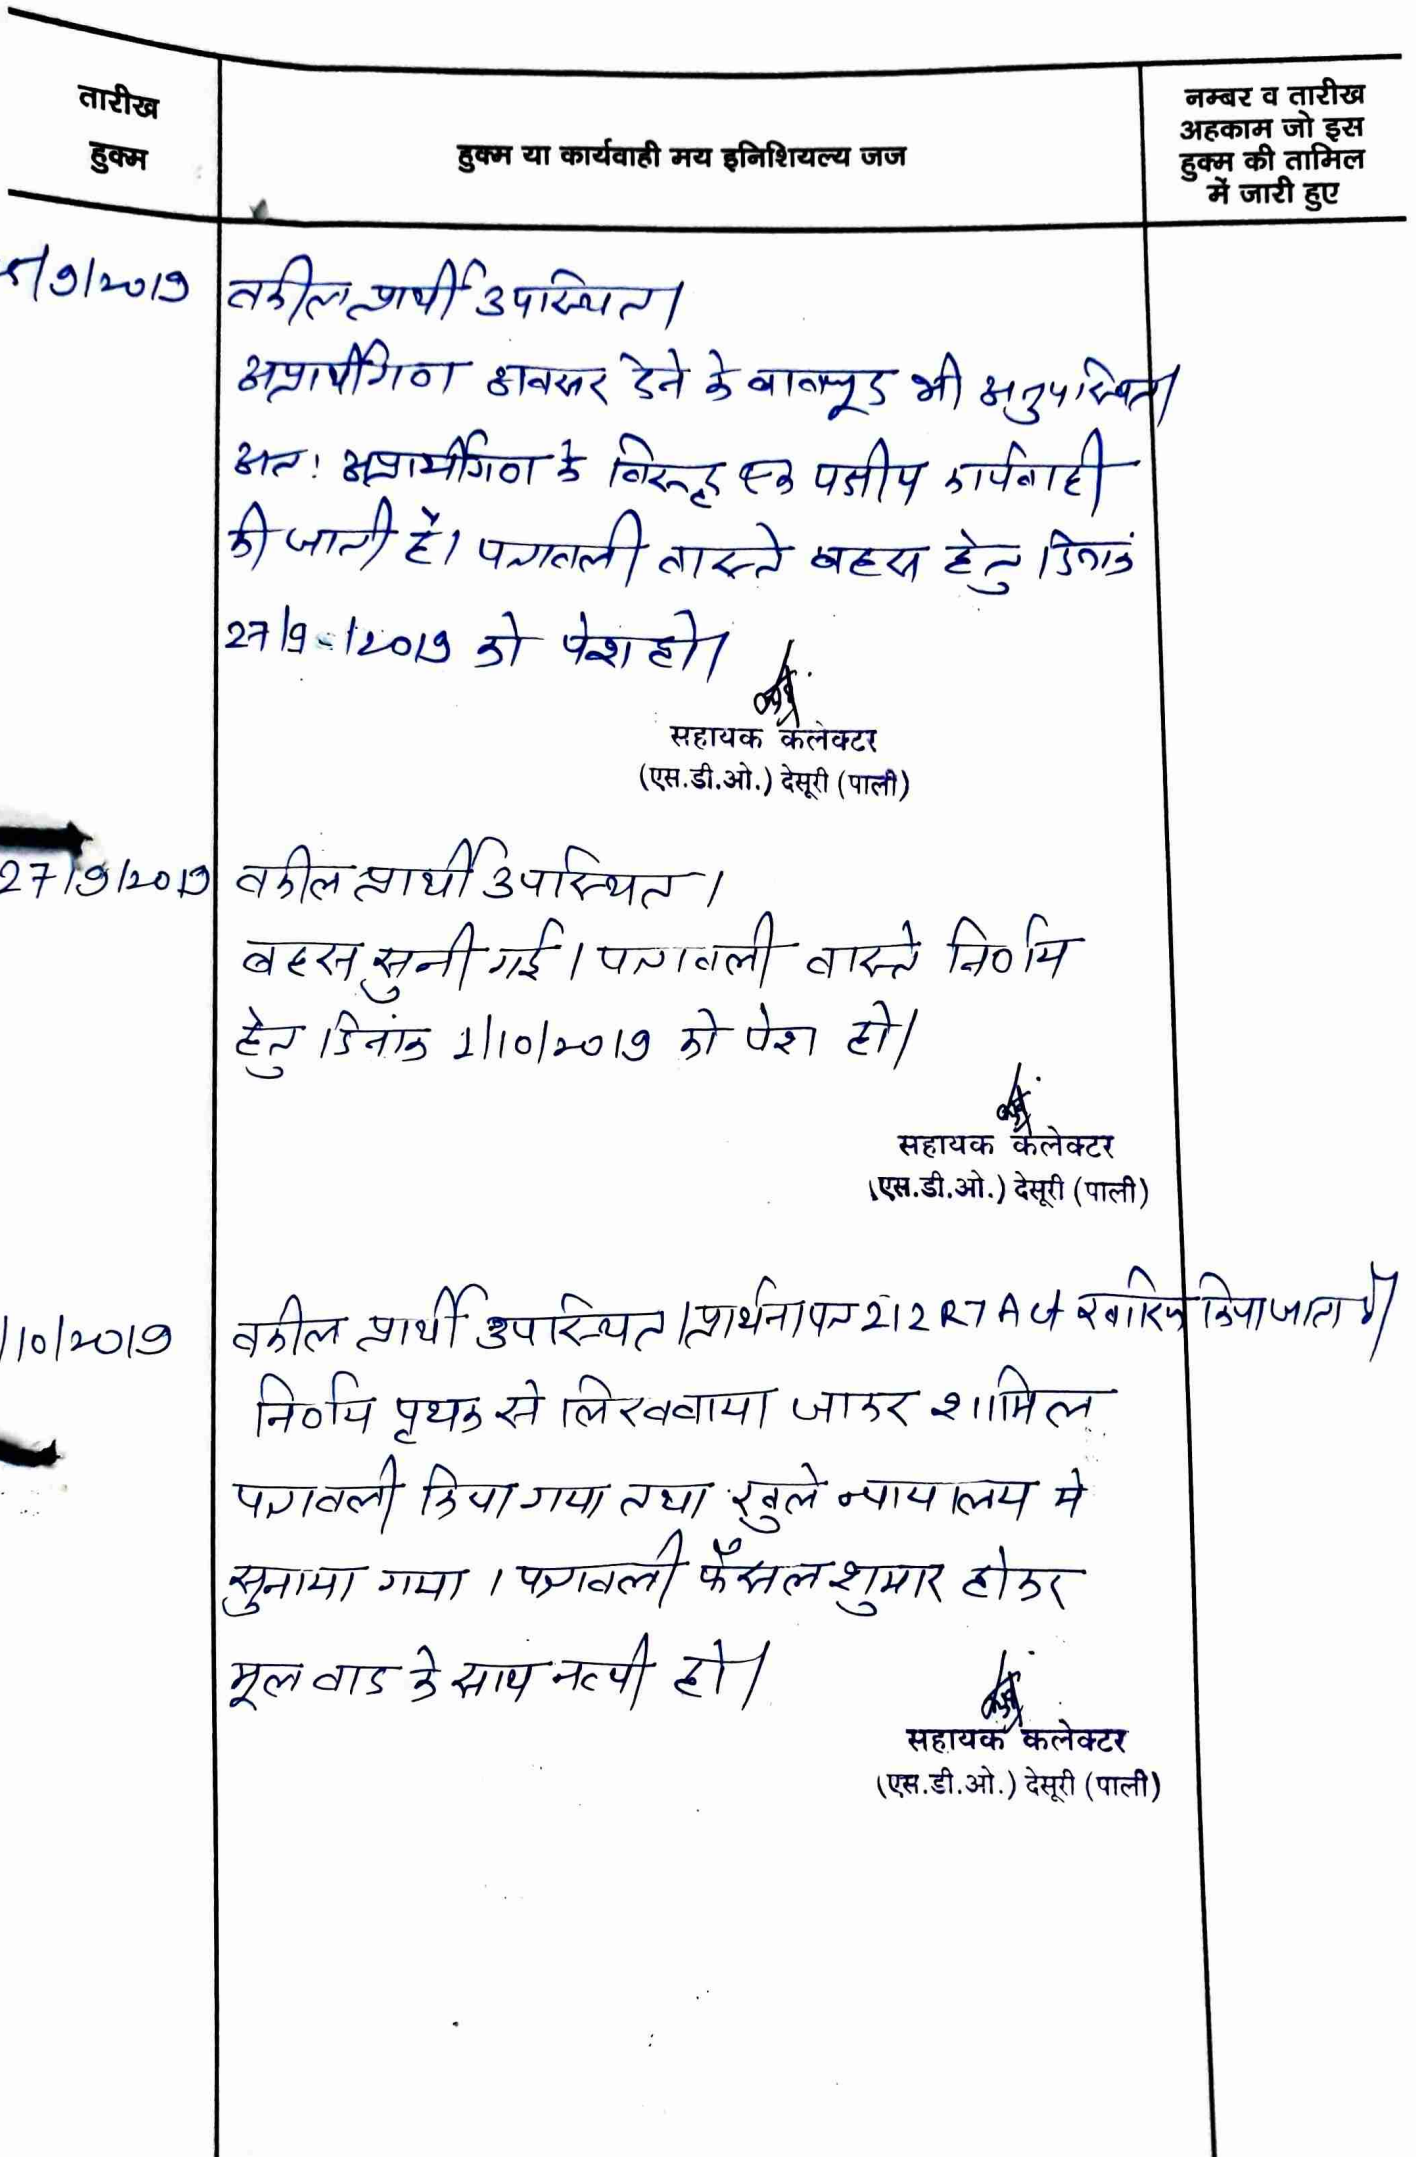 तारीख
हुक्म
हुक्म या कार्यवाही मय इनिशियल्य जज
नम्बर व तारीख
अहकाम जो इस
हुक्म की तामिल
में जारी हुए
/9/2019 वकील प्रार्थी उपस्थित।
अप्रार्थीगण अवसर देने के बावजूद भी अनुपस्थित।
अतः अप्रार्थीगण के विरूद्ध एक पक्षीय कार्यवाही
की जाती है। पत्रावली वास्ते बहस हेतु दिनांक
27/9/2019 को पेश हो।
सहायक कलेक्टर
(एस.डी.ओ.) देसूरी (पाली)
27/9/2019 वकील प्रार्थी उपस्थित।
बहस सुनी गई। पत्रावली वास्ते निर्णय
हेतु दिनांक 1/10/2019 को पेश हो।
सहायक कलेक्टर
(एस.डी.ओ.) देसूरी (पाली)
/10/2019 वकील प्रार्थी उपस्थित। प्रार्थना पत्र 212 RT Act खारिज किया जाता है।
निर्णय पृथक से लिखवाया जाकर शामिल
पत्रावली किया गया तथा खुले न्यायालय मे
सुनाया गया। पत्रावली फैसल शुमार होकर
मूल वाद के साथ नत्थी हो।
सहायक कलेक्टर
(एस.डी.ओ.) देसूरी (पाली)